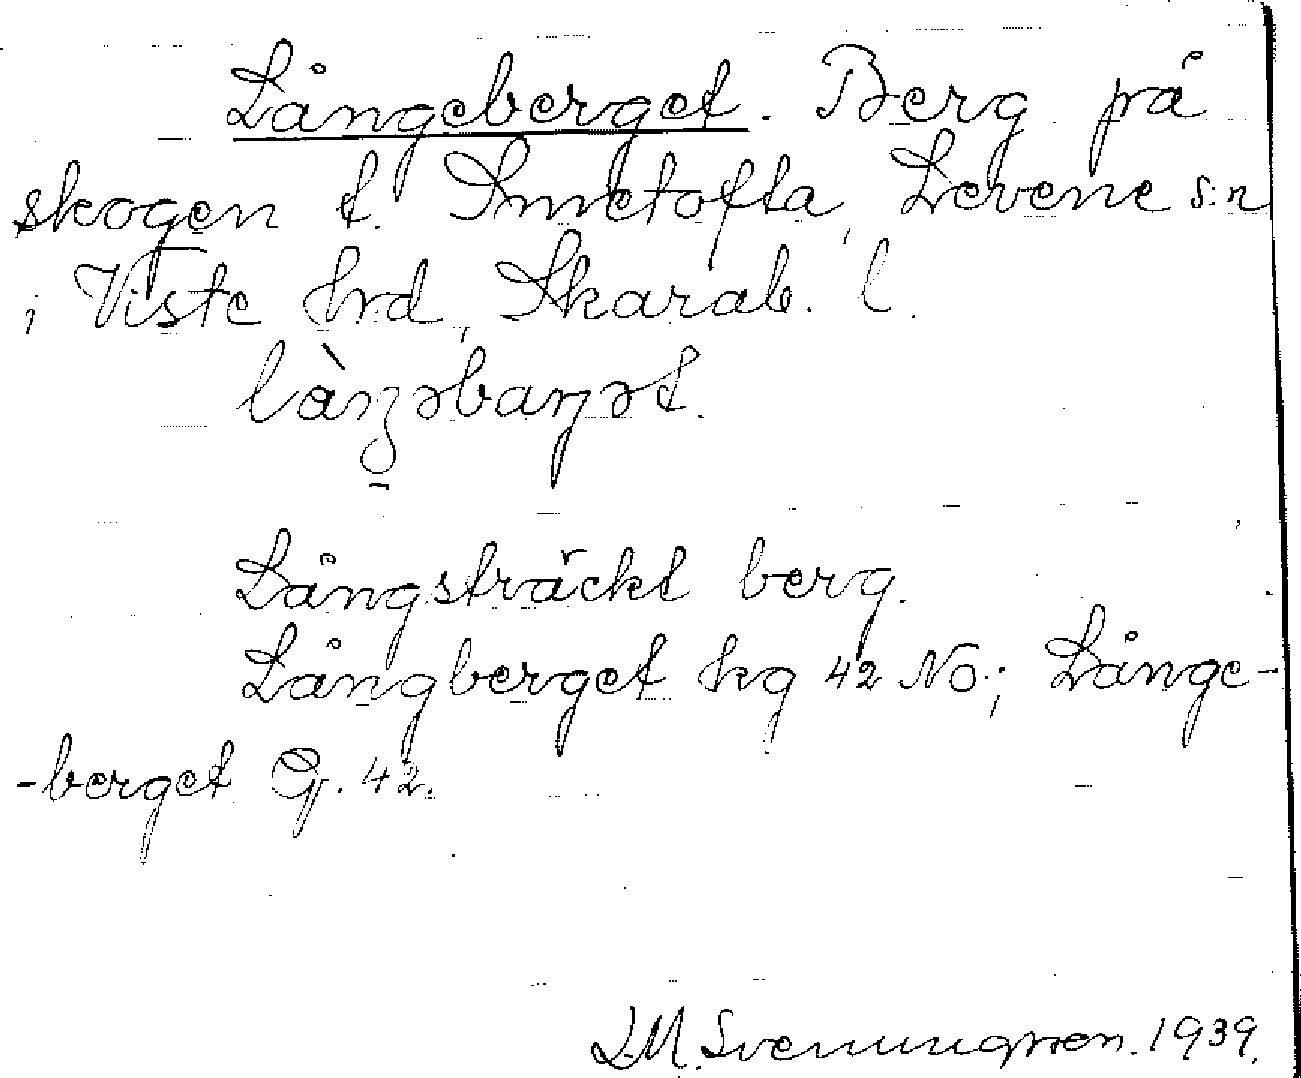 Långeberget. Berg på
skogen t. Smetofta, Levene s:n
i Viste hrd, Skarab. l.
Långsträckt berg.
Långberget hg 42 NÖ; Långe-
-berget G. 42.
L.M. Svenungsson. 1939.